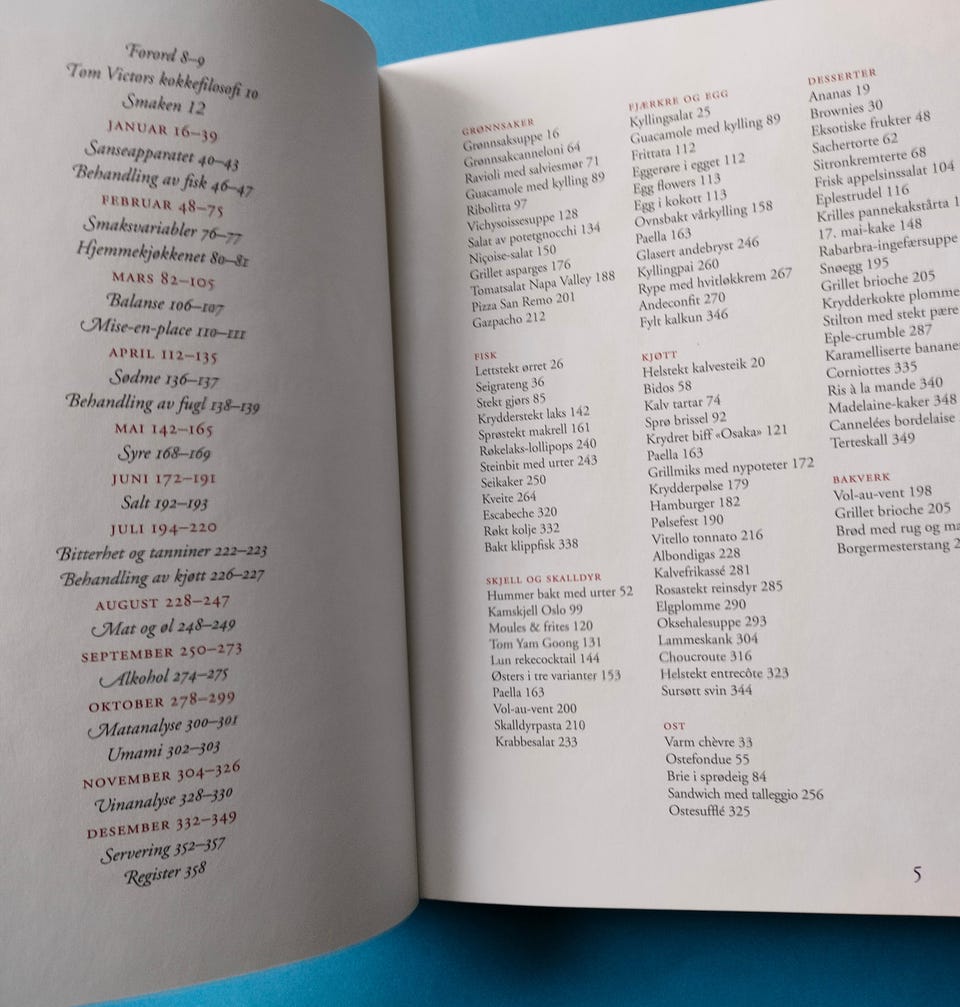 Forord 8–9
Tom Victors kokkefilosofi 10
Smaken 12
JANUAR 16–39
Sanseapparatet 40–43
Behandling av fisk 46–47
FEBRUAR 48–75
Smaksvariabler 76–77
Hjemmekjøkkenet 80–81
MARS 82–105
Balanse 106–107
Mise-en-place 110–111
APRIL 112–135
Sødme 136–137
Behandling av fugl 138–139
MAI 142–165
Syre 168–169
JUNI 172–191
Salt 192–193
JULI 194–220
Bitterhet og tanniner 222–223
Behandling av kjøtt 226–227
AUGUST 228–247
Mat og øl 248–249
SEPTEMBER 250–273
Alkohol 274–275
OKTOBER 278–299
Matanalyse 300–301
Umami 302–303
NOVEMBER 304–326
Vinanalyse 328–330
DESEMBER 332–349
Servering 352–357
Register 358
GRØNNSAKER
Grønnsaksuppe 16
Grønnsakcanneloni 64
Ravioli med salviesmør 71
Guacamole med kylling 89
Ribolitta 97
Vichysoissesuppe 128
Salat av potetgnocchi 134
Niçoise-salat 150
Grillet asparges 176
Tomatsalat Napa Valley 188
Pizza San Remo 201
Gazpacho 212
FISK
Lettstekt ørret 26
Seigrateng 36
Stekt gjørs 85
Krydderstekt laks 142
Sprøstekt makrell 161
Røkelaks-lollipops 240
Steinbit med urter 243
Seikaker 250
Kveite 264
Escabeche 320
Røkt kolje 332
Bakt klippfisk 338
SKJELL OG SKALLDYR
Hummer bakt med urter 52
Kamskjell Oslo 99
Moules & frites 120
Tom Yam Goong 131
Lun rekecocktail 144
Østers i tre varianter 153
Paella 163
Vol-au-vent 200
Skalldyrpasta 210
Krabbesalat 233
FJÆRKRE OG EGG
Kyllingsalat 25
Guacamole med kylling 89
Frittata 112
Eggerøre i egget 112
Egg flowers 113
Egg i kokott 113
Ovnsbakt vårkylling 158
Paella 163
Glasert andebryst 246
Kyllingpai 260
Rype med hvitløkkrem 267
Andeconfit 270
Fylt kalkun 346
KJØTT
Helstekt kalvesteik 20
Bidos 58
Kalv tartar 74
Sprø brissel 92
Krydret biff «Osaka» 121
Paella 163
Grillmiks med nypoteter 172
Krydderpølse 179
Hamburger 182
Pølsefest 190
Vitello tonnato 216
Albondigas 228
Kalvefrikassé 281
Rosastekt reinsdyr 285
Elgplomme 290
Oksehalesuppe 293
Lammeskank 304
Choucroute 316
Helstekt entrecôte 323
Sursøtt svin 344
OST
Varm chèvre 33
Ostefondue 55
Brie i sprødeig 84
Sandwich med talleggio 256
Ostesufflé 325
DESSERTER
Ananas 19
Brownies 30
Eksotiske frukter 48
Sachertorte 62
Sitronkremterte 68
Frisk appelsinssalat 104
Eplestrudel 116
Krilles pannekakstårta 1
17. mai-kake 148
Rabarbra-ingefærsuppe
Snøegg 195
Grillet brioche 205
Krydderkokte plomme
Stilton med stekt pære
Eple-crumble 287
Karamelliserte banane
Corniottes 335
Ris à la mande 340
Madelaine-kaker 348
Cannelées bordelaise
Terteskall 349
BAKVERK
Vol-au-vent 198
Grillet brioche 205
Brød med rug og ma
Borgermesterstang 2
5